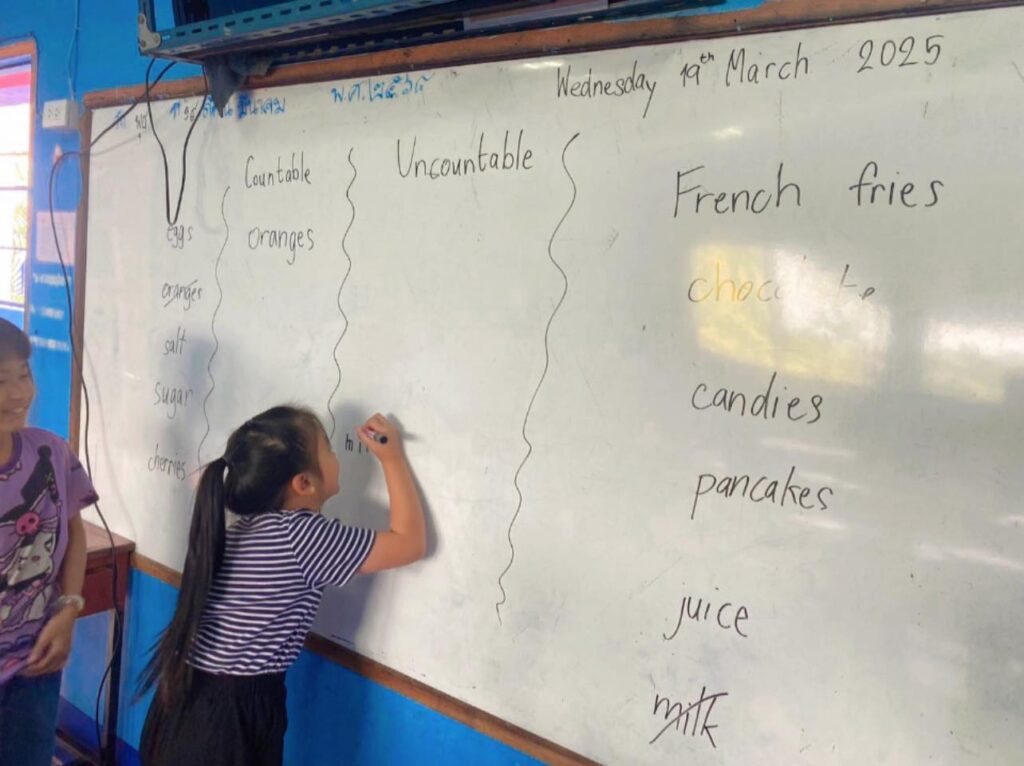 พ.ศ.๒๕๖๘
Wednesday 19th March 2025
Countable
Uncountable
eggs
oranges
salt
sugar
cherries
oranges
mi
French fries
chocolate
candies
pancakes
juice
milk